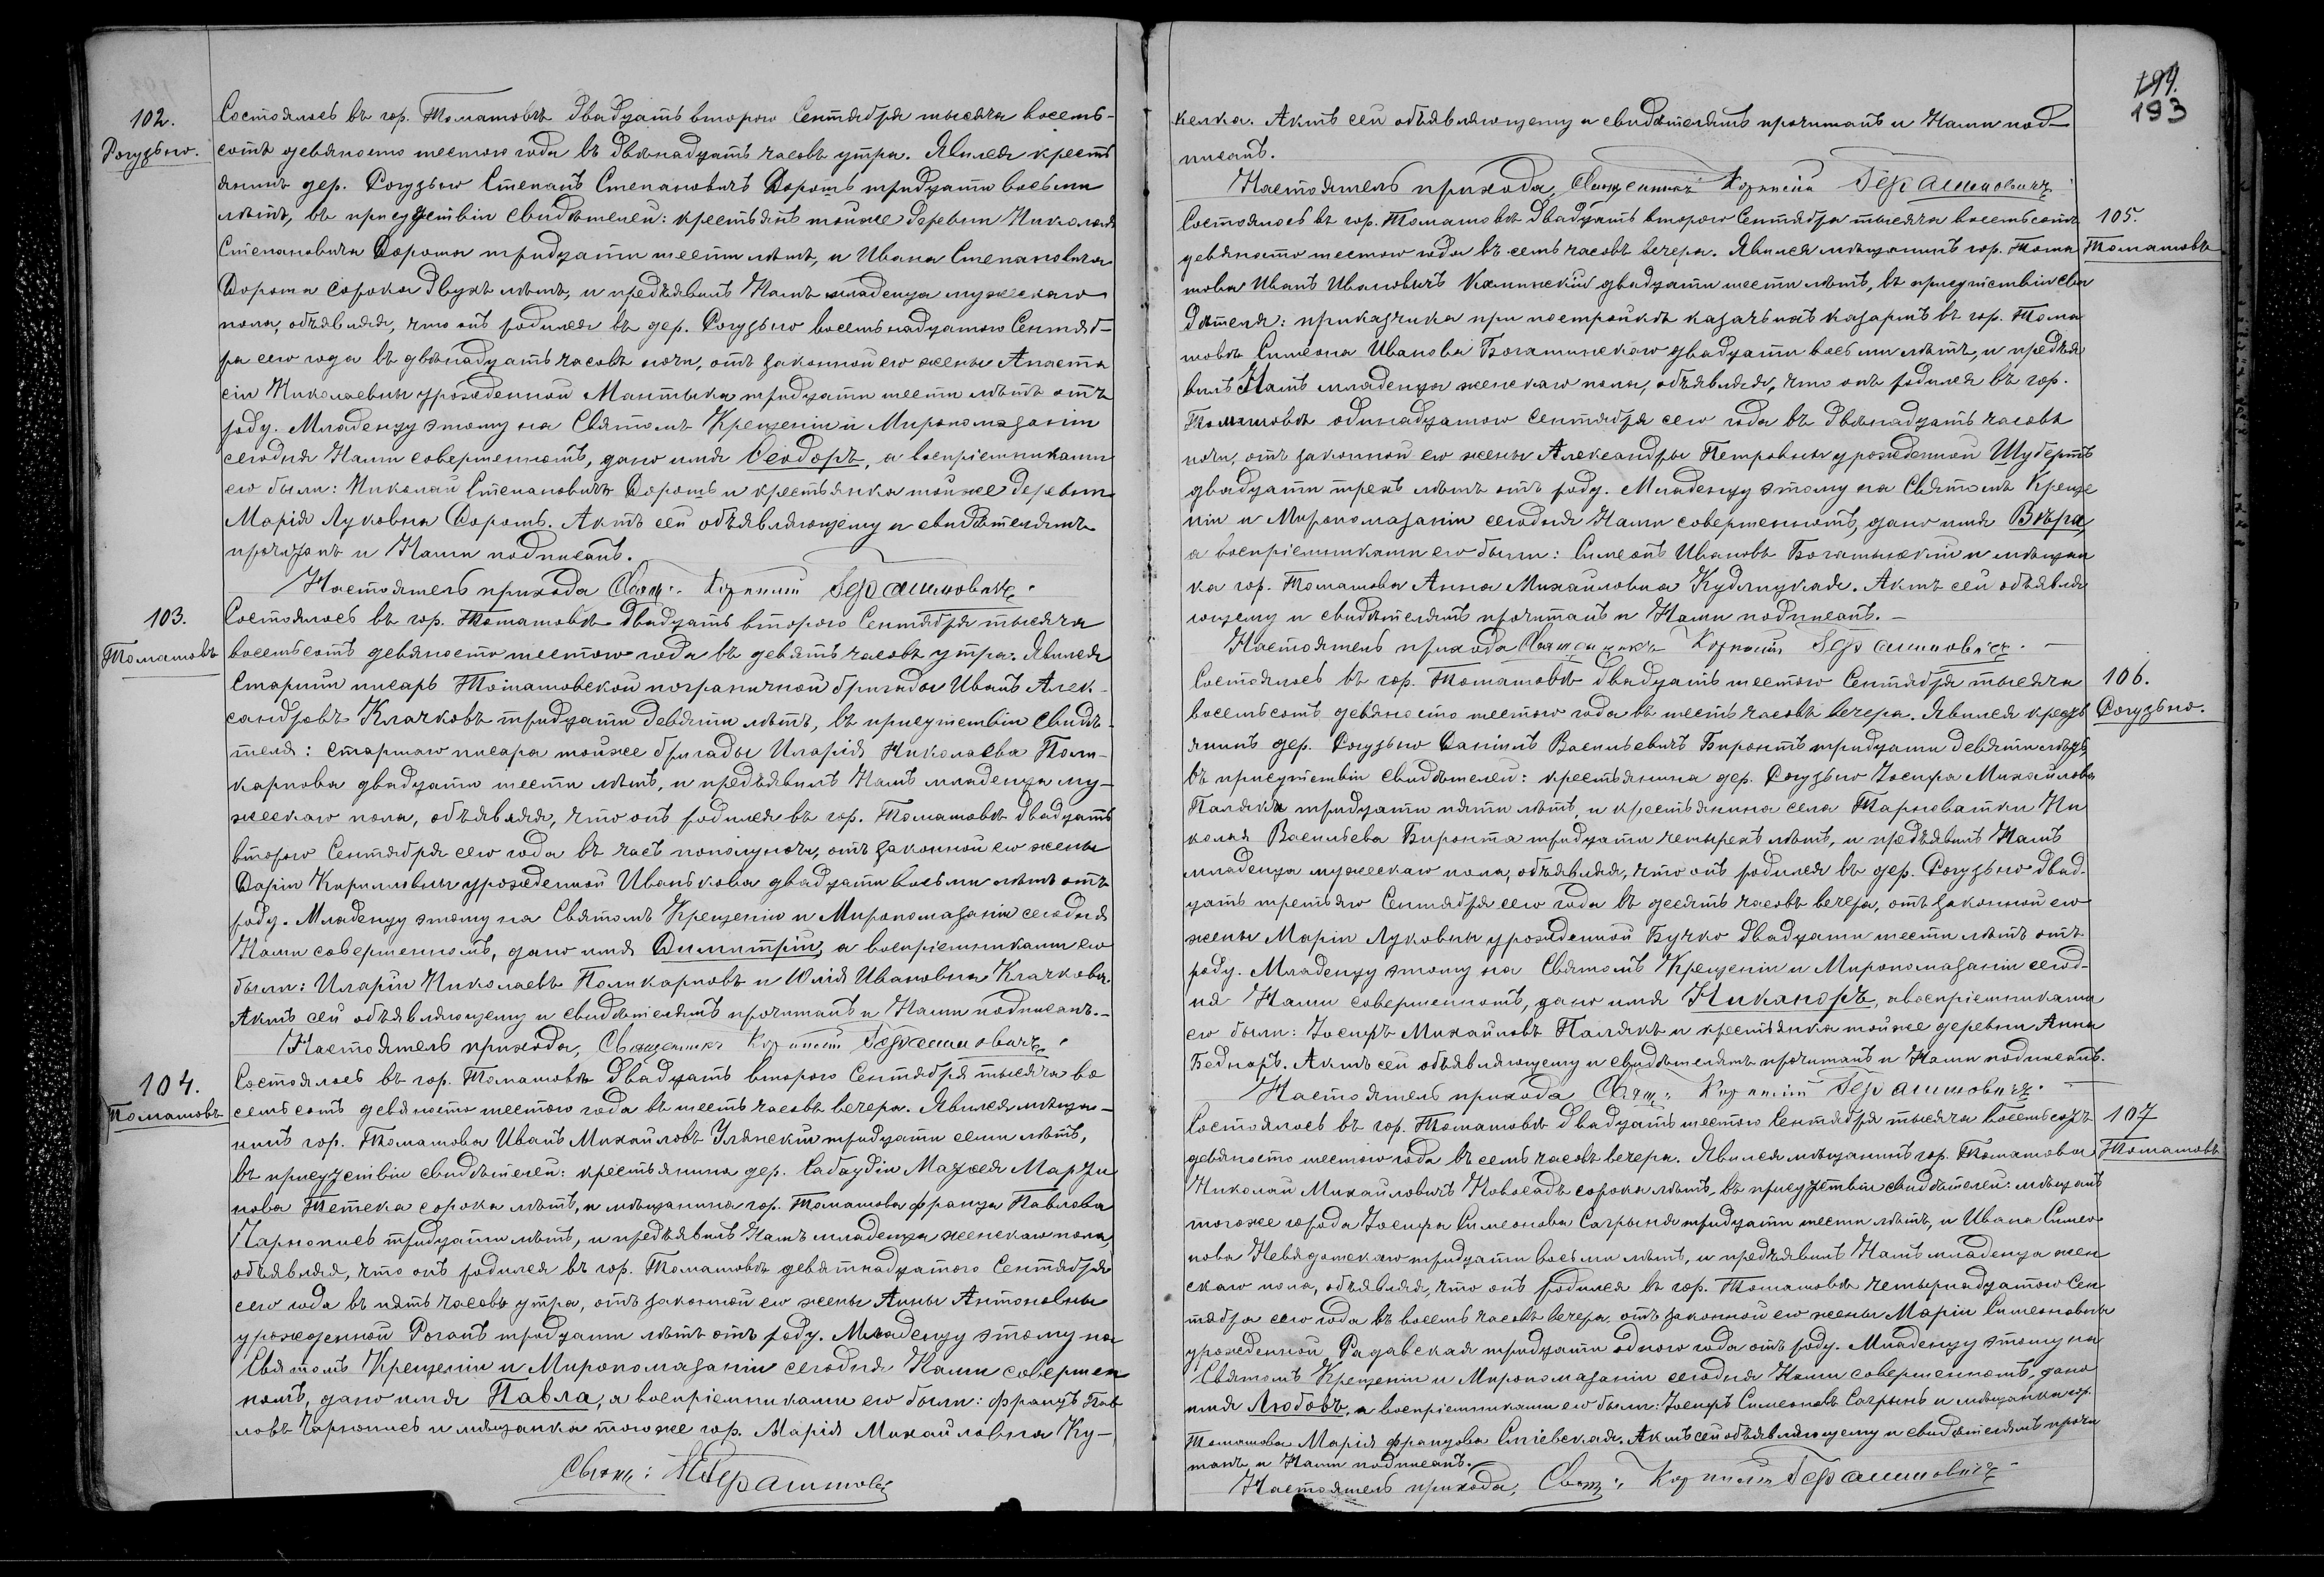 102.
Рогузьно.
Состоялось въ гор. Томашовѣ двадцать второго Сентября тысяча восемь-
сотъ девяносто шестого года въ двѣнадцать часовъ утра. Явился кресть
янинъ дер. Рогузьно Степанъ Степановичъ Дорошъ тридцати восьми
лѣтъ, въ присутствіи свидѣтелей: крестьянъ тойже деревни Николая
Степановича Дороша тридцати шести лѣтъ, и Ивана Степановича
Дороша сорока двухъ лѣтъ, и предъявилъ Намъ младенца мужескаго
пола, объявляя, что онъ родился въ дер. Рогузьно восемьнадцатого Сентяб-
ря сего года въ двѣнадцать часовъ ночи, отъ законной его жены Анаста
сіи Николаевны урожденной Мантыка тридцати шести лѣтъ отъ
роду. Младенцу этому на Святомъ Крещеніи и Миропомазаніи
сегодня Нами совершенномъ, дано имя Ѳеодоръ, а воспріемниками
его были: Николай Степановичъ Дорошъ и крестьянка тойже деревни
Марія Луковна Дорошъ. Актъ сей объявляющему и свидѣтелямъ
прочитанъ и Нами подписанъ.
Настоятель прихода Свящ: Корнилій Герасимовичъ.
103.
Томашовъ
Состоялось въ гор. Томашовѣ двадцать второго Сентября тысяча
восемьсотъ девяносто шестого года въ девять часовъ утра. Явился
Старшій писарь Томашовской пограничной бригады Иванъ Алек-
сандровъ Клачковъ тридцати девяти лѣтъ, въ присутствіи свидѣ-
теля: старшаго писаря тойже бригады Иларія Николаева Поли-
карпова двадцати шести лѣтъ, и предъявилъ Намъ младенца му-
жескаго пола, объявляя, что онъ родился въ гор. Томашовѣ двадцать
второго Сентября сего года въ часъ пополуночи, отъ законной его жены
Даріи Кирилловны урожденной Иванькова двадцати восьми лѣтъ отъ
роду. Младенцу этому на Святомъ Крещеніи и Миропомазаніи сегодня
Нами совершенномъ, дано имя Димитрій, а воспріемниками его
были: Иларій Николаевъ Поликарповъ и Юлія Ивановна Клачкова.
Актъ сей объявляющему и свидѣтелямъ прочитанъ и Нами подписанъ.-
Настоятель прихода, Священникъ Корнилій Герасимовичъ.
104.
Томашовъ
Состоялось въ гор. Томашовѣ двадцать второго Сентября тысяча во
семьсотъ девяносто шестого года въ шесть часовъ вечера. Явился мѣща-
нинъ гор. Томашова Иванъ Михайловъ Улянскій тридцати семи лѣтъ,
въ присутствіи свидѣтелей: крестьянина дер. Сабаудіи Матѳея Марци
нова Тетека сорока лѣтъ, и мѣщанина гор. Томашова Франца Павлова
Чарнопись тридцати лѣтъ, и предъявилъ Намъ младенца женскаго пола,
объявляя, что онъ родился въ гор. Томашовѣ девятнадцатого Сентября
сего года въ пять часовъ утра, отъ законной его жены Анны Антоновны
урожденной Роганъ тридцати лѣтъ отъ роду. Младенцу этому на
Святомъ Крещеніи и Миропомазаніи сегодня Нами совершен
номъ, дано имя Павла, а воспріемниками его были: Францъ Пав
ловъ Чарнопись и мѣщанка тогоже гор. Марія Михайловна Ку-
Свящ: К Герасимовичъ
194.
193
келка. Актъ сей объявляющему и свидѣтелямъ прочитанъ и Нами под-
писанъ.
Настоятель прихода, Священникъ Корнилій Герасимовичъ.
105.
Томашовъ
Состоялось въ гор. Томашовѣ двадцать второго Сентября тысяча восемьсотъ
девяносто шестого года въ семь часовъ вечера. Явился мѣщанинъ гор. Тома
шова Иванъ Ивановичъ Калинскій двадцати шести лѣтъ, въ присутствіи сви
дѣтеля: приказчика при постройкѣ казачьихъ казармъ въ гор. Тома
шовѣ Симеона Иванова Богатинскаго двадцати восьми лѣтъ, и предъя
вилъ Намъ младенца женскаго пола, объявляя, что онъ родился въ гор.
Томашовѣ одинадцатого сентября сего года въ двѣнадцать часовъ
ночи, отъ законной его жены Александры Петровны урожденной Шубертъ
двадцати трехъ лѣтъ отъ роду. Младенцу этому на Святомъ Креще
ніи и Миропомазаніи сегодня Нами совершенномъ, дано имя Вѣра,
а воспріемниками его были: Симеонъ Ивановъ Богатынскій и мѣщан
ка гор. Томашова Анна Михайловна Кудлицкая. Актъ сей объявля
ющему и свидѣтелямъ прочитанъ и Нами подписанъ.-
Настоятель прихода Священникъ Корнилій Герасимовичъ.
106.
Рогузьно.
Состоялось въ гор. Томашовѣ двадцать шестого Сентября тысяча
восемьсотъ девяносто шестого года въ шесть часовъ вечера. Явился кресть
янинъ дер. Рогузьно Даніилъ Васильевичъ Биронтъ тридцати девяти лѣтъ,
въ присутствіи свидѣтелей: крестьянина дер. Рогузьно Іосифа Михайлова
Паляка тридцати пяти лѣтъ, и крестьянина села Тарноватки Ни
колая Васильева Биронта тридцати четырехъ лѣтъ, и предъявилъ Намъ
младенца мужескаго пола, объявляя, что онъ родился въ дер. Рогузьно двад-
цать третьяго Сентября сего года въ десять часовъ вечера, отъ законной его
жены Маріи Луковны урожденной Бучко двадцати шести лѣтъ отъ
роду. Младенцу этому на Святомъ Крещеніи и Миропомазаніи сегод-
ня Нами совершенномъ, дано имя Никаноръ, а воспріемниками
его были: Іосифъ Михайловъ Палякъ и крестьянка тойже деревни Анна
Беднаръ. Актъ сей объявляющему и свидѣтелямъ прочитанъ и Нами подписанъ.
Настоятель прихода Свящ: Корнилій Герасимовичъ.
107
Томашовъ
Состоялось въ гор. Томашовѣ двадцать шестого Сентября тысяча восемьсотъ
девяносто шестого года въ семь часовъ вечера. Явился мѣщанинъ гор. Томашова
Николай Михайловичъ Новосадъ сорока лѣтъ, въ присутствіи свидѣтелей: мѣщанъ
тогоже города Іосифа Симеонова Сагрыня тридцати шести лѣтъ, и Ивана Симео
нова Невядомскаго тридцати восьми лѣтъ, и предъявилъ Намъ младенца жен
скаго пола, объявляя, что онъ родился въ гор. Томашовѣ четырнадцатого Сен
тября сего года въ восемь часовъ вечера, отъ законной его жены Маріи Симеоновны
урожденной Радавская тридцати одного года отъ роду. Младенцу этому на
Святомъ Крещеніи и Миропомазаніи сегодня Нами совершенномъ, дано
имя Любовь, а воспріемниками его были: Іосифъ Симеоновъ Сагрынь и мѣщанка гор.
Томашова Марія Францова Сніевская. Актъ сей объявляющему и свидѣтелямъ прочи
танъ и Нами подписанъ.
Настоятель прихода, Свящ: Корнилій Герасимовичъ